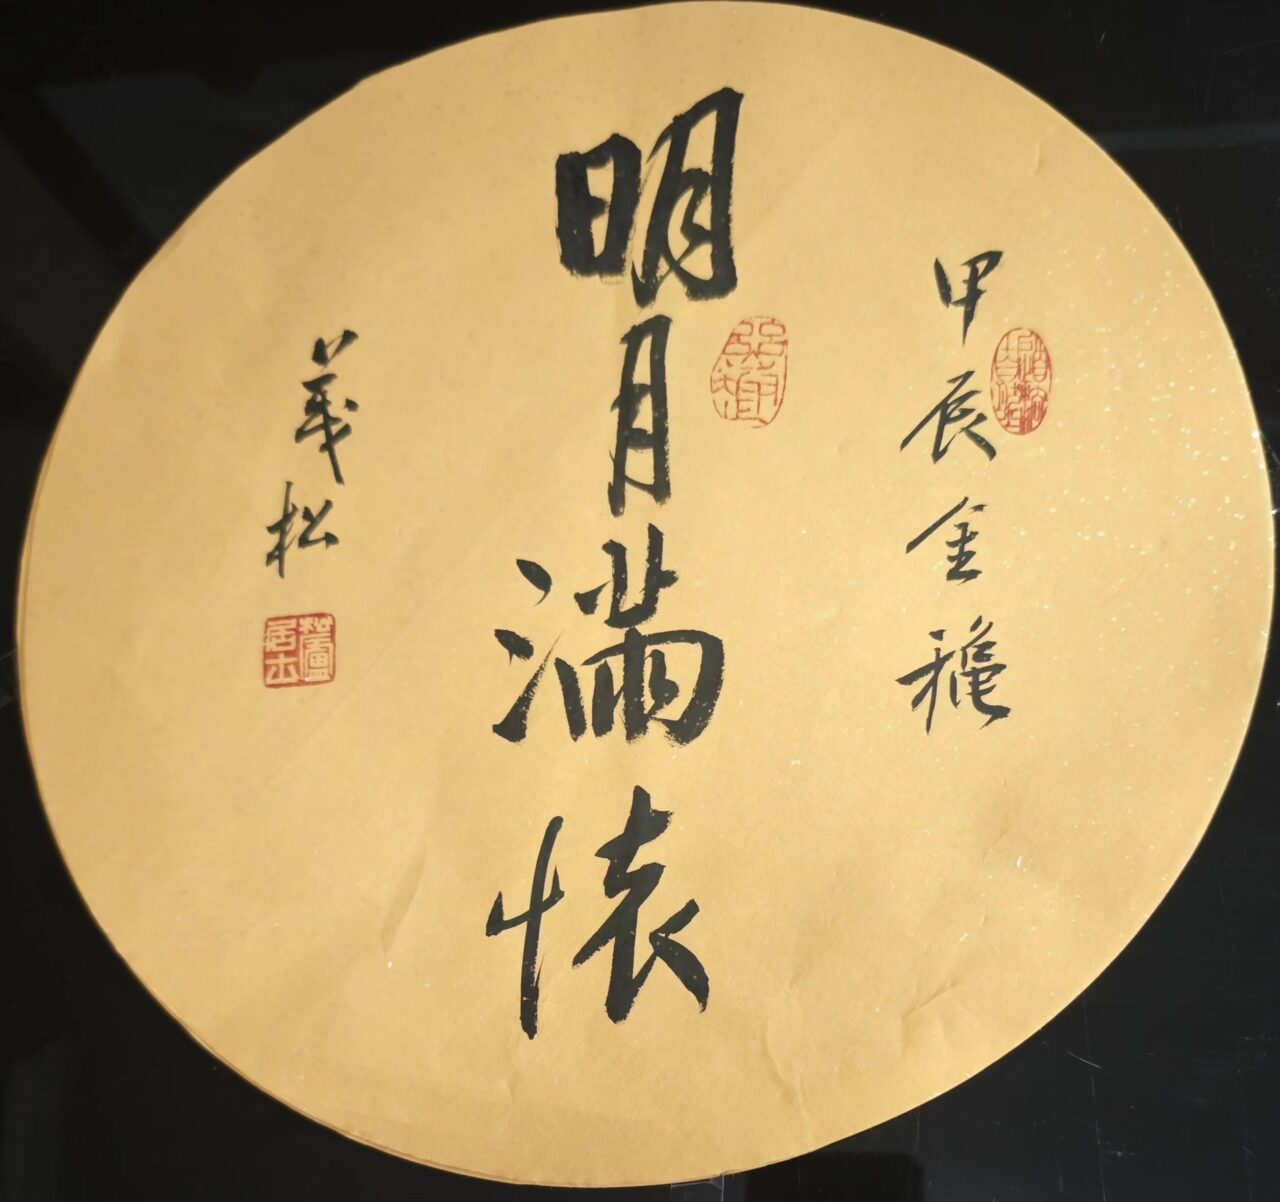 甲辰金穐
明月滿懷
義松